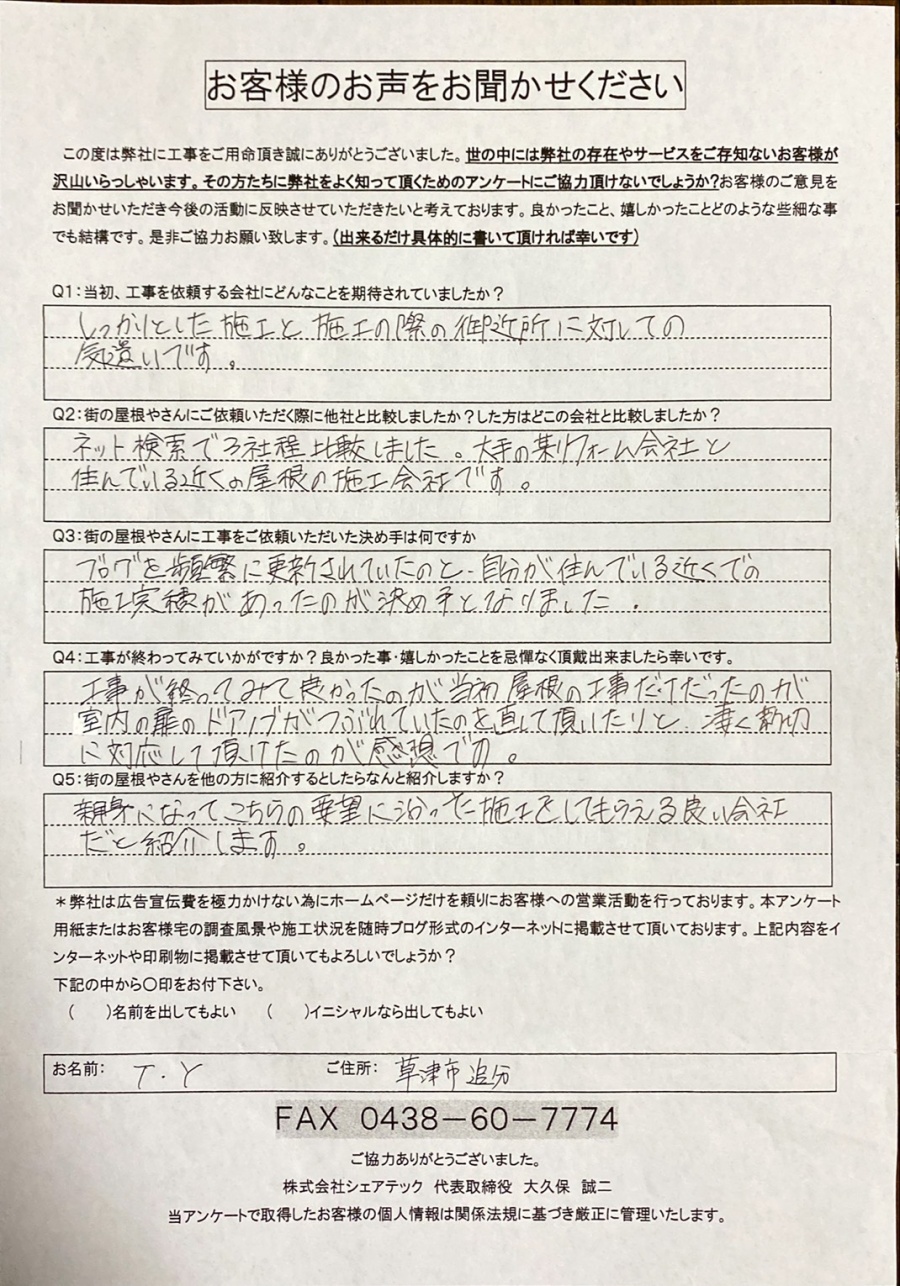 お客様のお声をお聞かせください
この度は弊社に工事をご用命頂き誠にありがとうございました。世の中には弊社の存在やサービスをご存知ないお客様が
沢山いらっしゃいます。その方たちに弊社をよく知って頂くためのアンケートにご協力頂けないでしょうか?お客様のご意見を
お聞かせいただき今後の活動に反映させていただきたいと考えております。良かったこと、嬉しかったことどのような些細な事
でも結構です。是非ご協力お願い致します。(出来るだけ具体的に書いて頂ければ幸いです)
Q1:当初、工事を依頼する会社にどんなことを期待されていましたか?
しっかりとした施工と施工の際の御近所に対しての
気遣いです。
Q2:街の屋根やさんにご依頼いただく際に他社と比較しましたか?した方はどこの会社と比較しましたか?
ネット検索で3社程比較しました。大手の某リフォーム会社と
住んでいる近くの屋根の施工会社です。
Q3:街の屋根やさんに工事をご依頼いただいた決め手は何ですか
ブログを頻繁に更新されていたのと、自分が住んでいる近くでの
施工実績があったのが決め手となりました.
Q4:工事が終わってみていかがですか?良かった事・嬉しかったことを忌憚なく頂戴出来ましたら幸いです。
工事が終ってみて良かったのが当初屋根の工事だけだったのが
室内の扉のドアノブがつぶれていたのを直して頂いたりと、凄く親切
に対応して頂けたのが感想です。
Q5:街の屋根やさんを他の方に紹介するとしたらなんと紹介しますか?
親身になってこちらの要望に沿った施工をしてもらえる良い会社
だと紹介します。
*弊社は広告宣伝費を極力かけない為にホームページだけを頼りにお客様への営業活動を行っております。本アンケート
用紙またはお客様宅の調査風景や施工状況を随時ブログ形式のインターネットに掲載させて頂いております。上記内容をイ
ンターネットや印刷物に掲載させて頂いてもよろしいでしょうか?
下記の中から〇印をお付下さい。
( )名前を出してもよい ( )イニシャルなら出してもよい
お名前: T.Y ご住所: 草津市追分
FAX 0438-60-7774
ご協力ありがとうございました。
株式会社シェアテック 代表取締役 大久保 誠二
当アンケートで取得したお客様の個人情報は関係法規に基づき厳正に管理いたします。